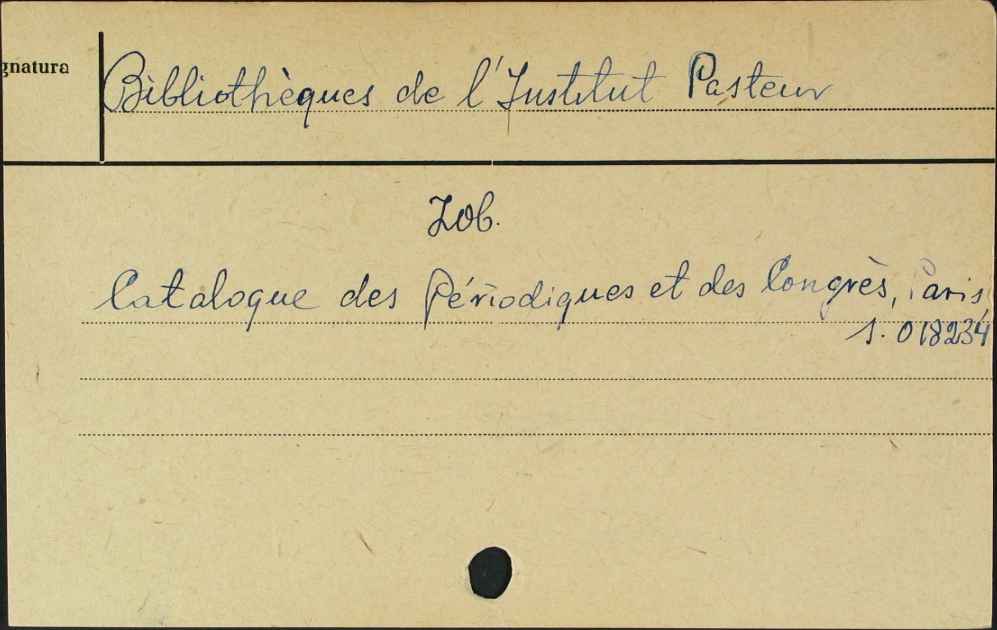 gnatura
Bibliothèques de l'Institut Pasteur
Zob.
Catalogue des Périodiques et des Congrès, Paris
S. 018234